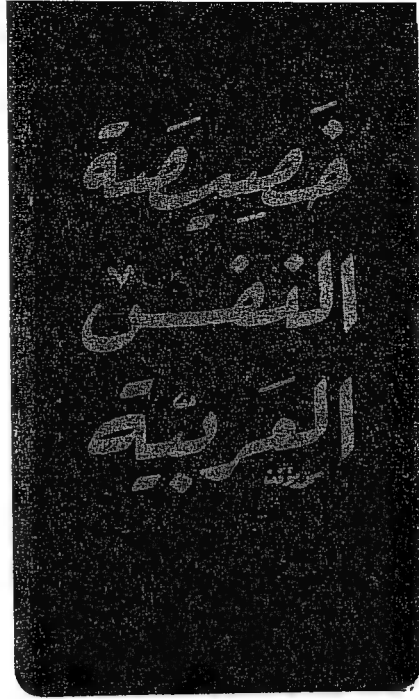 خَصِيصَة
النفس
العَربيّة